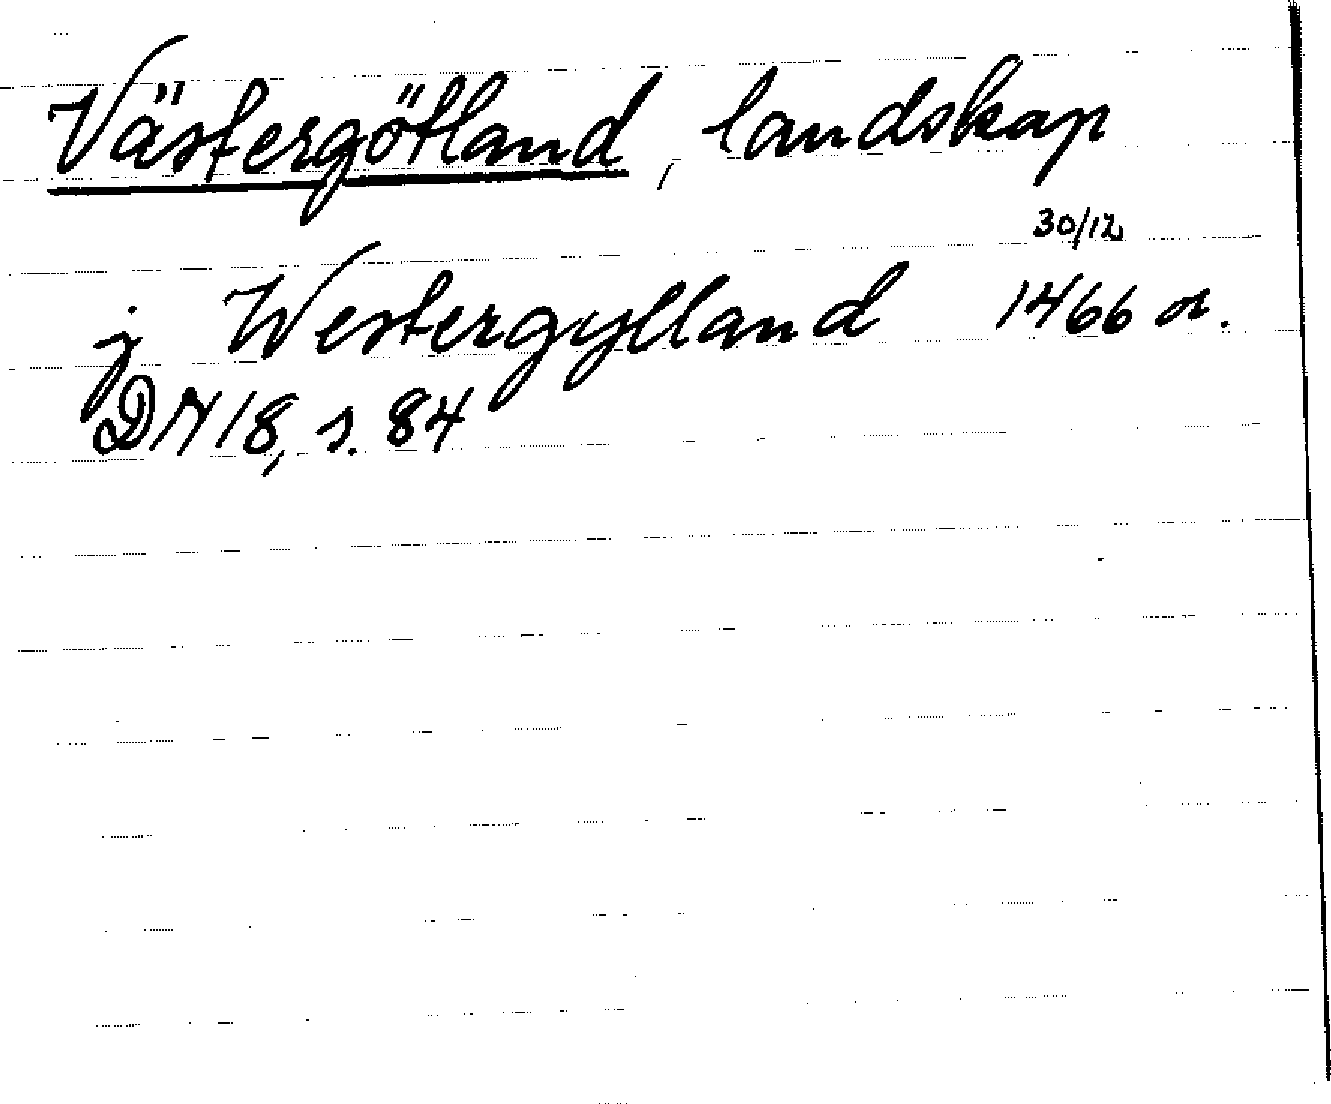 Västergötland, landskap
30/12
j Westergylland 1466 or.
DN 18, s. 84